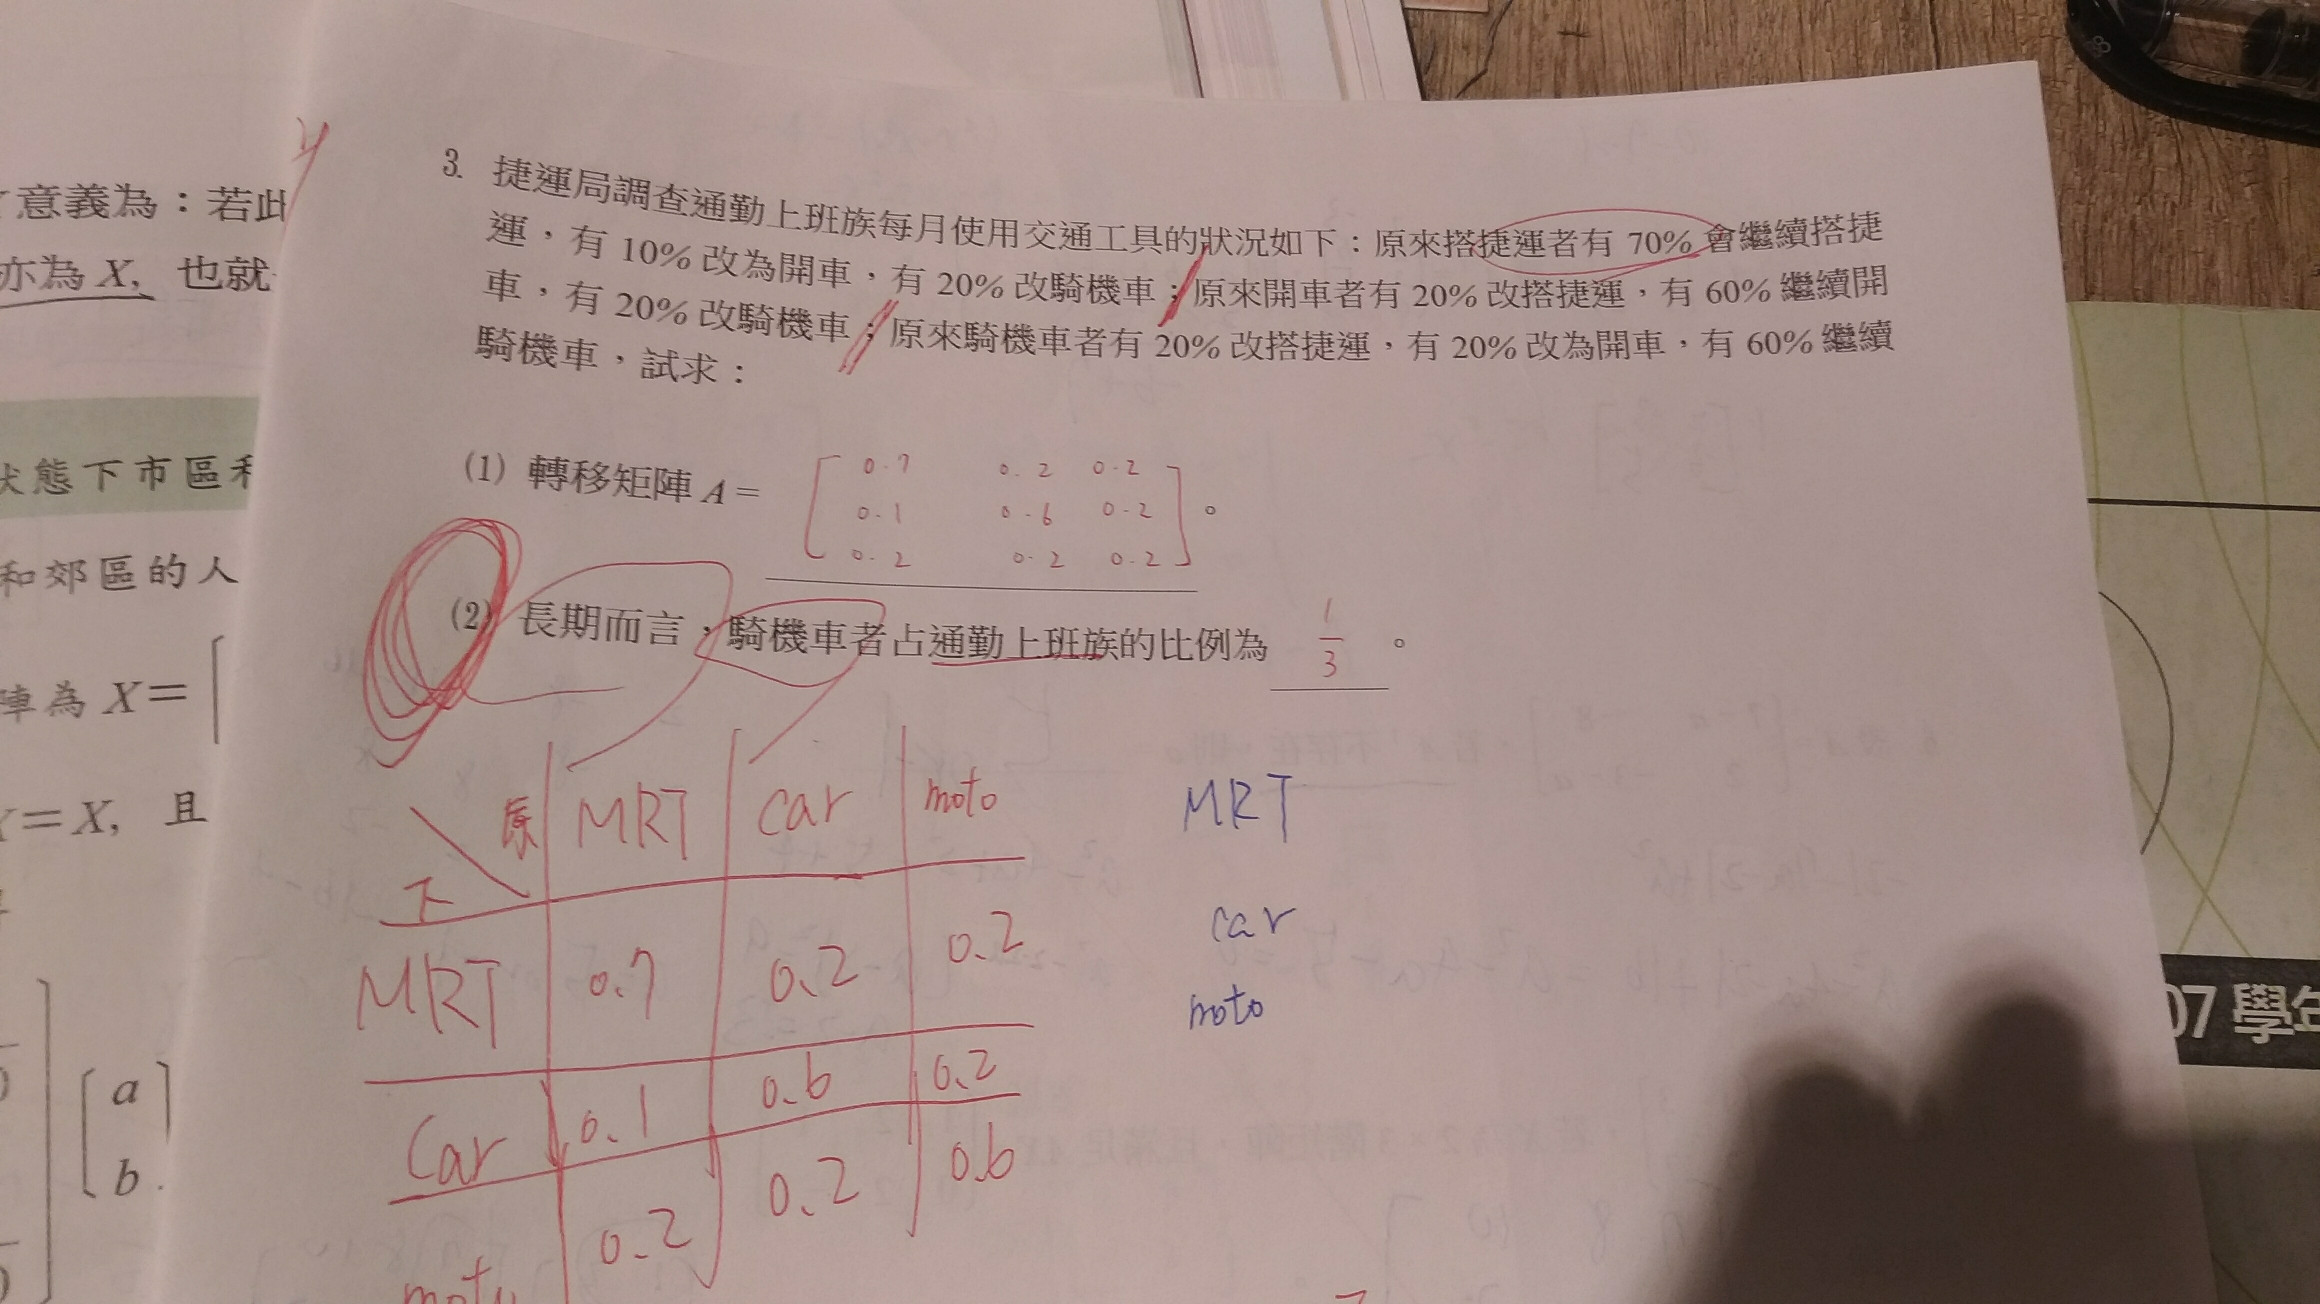 意義為：若此
亦為 X, 也就
狀態下市區和
和郊區的人
陣為 X=[
X=X, 且
[a
b]
3. 捷運局調查通勤上班族每月使用交通工具的狀況如下：原來搭捷運者有 70% 會繼續搭捷
運，有 10% 改為開車，有 20% 改騎機車；原來開車者有 20% 改搭捷運，有 60% 繼續開
車，有 20% 改騎機車；原來騎機車者有 20% 改搭捷運，有 20% 改為開車，有 60% 繼續
騎機車，試求：
(1) 轉移矩陣 A= [ 0.7 0.2 0.2
0.1 0.6 0.2
0.2 0.2 0.2 ]。
(2) 長期而言，騎機車者占通勤上班族的比例為 1/3 。
原 MRT car moto
下
MRT 0.7 0.2 0.2
Car 0.1 0.6 0.2
moto 0.2 0.2 0.6
MRT
car
moto
07 學年